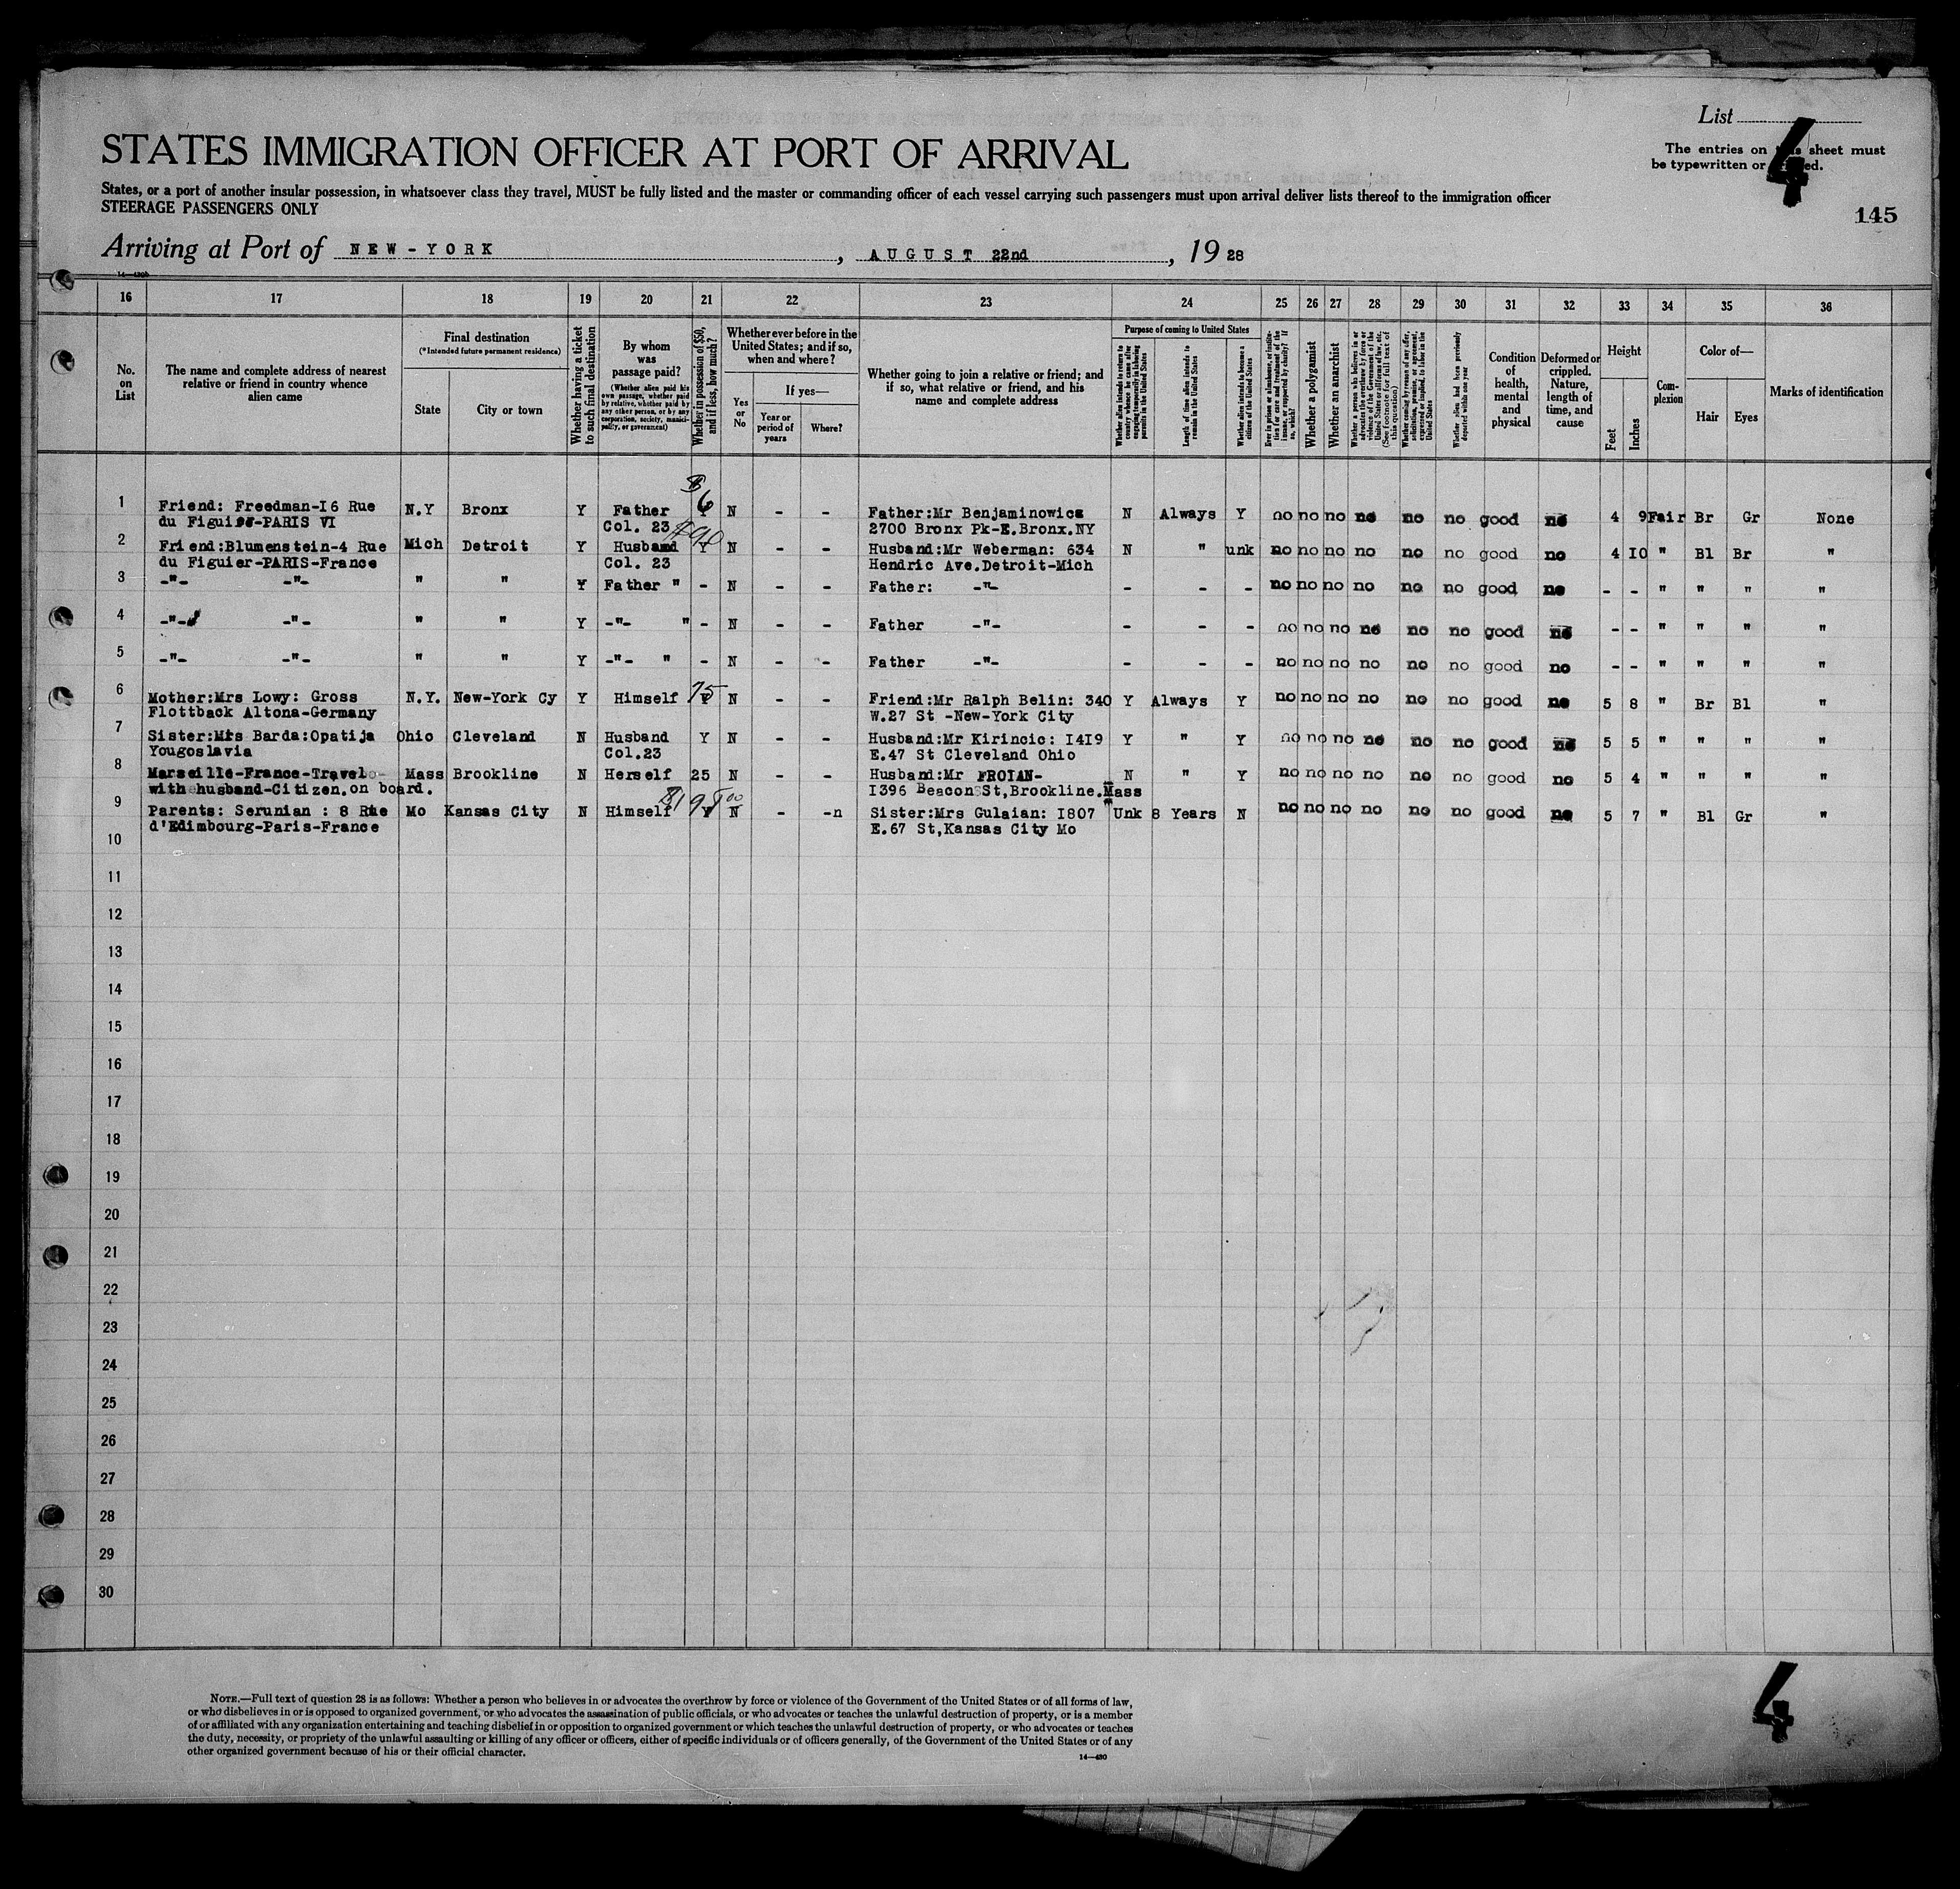 List 4
STATES IMMIGRATION OFFICER AT PORT OF ARRIVAL
The entries on sheet must
be typewritten or
States, or a port of another insular possession, in whatsoever class they travel, MUST be fully listed and the master or commanding officer of each vessel carrying such passengers must upon arrival deliver lists thereof to the immigration officer
STEERAGE PASSENGERS ONLY
145
Arriving at Port of NEW-YORK, AUGUST 22nd, 19 28
16 17 18 19 20 21 22 23 24 25 26 27 28 29 30 31 32 33 34 35 36
No. on List
The name and complete address of nearest relative or friend in country whence alien came
Final destination
(*Intended future permanent residence)
State
City or town
Whether having a ticket to such final destination
By whom was passage paid?
(Whether alien paid his own passage, whether paid by relative, whether paid by any other person, or by any corporation, society, municipality, or government)
Whether in possession of $50, and if less, how much?
Whether ever before in the United States; and if so, when and where?
Yes or No
If yes—
Year or period of years
Where?
Whether going to join a relative or friend; and if so, what relative or friend, and his name and complete address
Purpose of coming to United States
Whether alien intends to return to country whence he came after engaging temporarily in laboring pursuits in the United States
Length of time alien intends to remain in the United States
Whether alien intends to become a citizen of the United States
Ever in prison or almshouse, or institution for care and treatment of the insane, or supported by charity? If so, which?
Whether a polygamist
Whether an anarchist
Whether a person who believes in or advocates the overthrow by force or violence of the Government of the United States or all forms of law, etc. (See footnote for full text of this question)
Whether coming by reason of any offer, solicitation, promise, or agreement, expressed or implied, to labor in the United States
Whether alien had been previously deported within one year
Condition of health, mental and physical
Deformed or crippled. Nature, length of time, and cause
Height
Feet
Inches
Complexion
Color of—
Hair
Eyes
Marks of identification
1 Friend: Freedman-I6 Rue N.Y Bronx Y Father $6 N - - Father:Mr Benjaminowicz N Always Y no no no no no no good no 4 9 Fair Br Gr None
du Figuier-PARIS VI Col. 23 2700 Bronx Pk-E.Bronx.NY
2 Friend:Blumenstein-4 Rue Mich Detroit Y Husband Y N - - Husband:Mr Weberman: 634 N " unk no no no no no no good no 4 IO " Bl Br "
du Figuier-PARIS-France Col. 23 Hendric Ave.Detroit-Mich
3 -"- -"- " " Y Father " - N - - Father: -"- - - - no no no no no no good no - - " " " "
4 -"- -"- " " Y -"- " - N - - Father -"- - - - no no no no no no good no - - " " " "
5 -"- -"- " " Y -"- " - N - - Father -"- - - - no no no no no no good no - - " " " "
6 Mother:Mrs Lowy: Gross N.Y. New-York Cy Y Himself 75 Y N - - Friend:Mr Ralph Belin: 340 Y Always Y no no no no no no good no 5 8 " Br Bl "
Flottback Altona-Germany W.27 St -New-York City
7 Sister:Mrs Barda:Opatija Ohio Cleveland N Husband Y N - - Husband:Mr Kirincic: I4I9 Y " Y no no no no no no good no 5 5 " " " "
Yougoslavia Col.23 E.47 St Cleveland Ohio
8 Marseille-France-Travel Mass Brookline N Herself 25 N - - Husband:Mr FROIAN- N " Y no no no no no no good no 5 4 " " " "
with husband-Citizen.on board. I396 Beacon St,Brookline.Mass
9 Parents: Serunian : 8 Rue Mo Kansas City N Himself Y N - -n Sister:Mrs Gulaian: I807 Unk 8 Years N no no no no no no good no 5 7 " Bl Gr "
d'Edimbourg-Paris-France E.67 St,Kansas City Mo
10
11
12
13
14
15
16
17
18
19
20
21
22
23
24
25
26
27
28
29
30
4
NOTE.—Full text of question 28 is as follows: Whether a person who believes in or advocates the overthrow by force or violence of the Government of the United States or of all forms of law,
or who disbelieves in or is opposed to organized government, or who advocates the assassination of public officials, or who advocates or teaches the unlawful destruction of property, or is a member
of or affiliated with any organization entertaining and teaching disbelief in or opposition to organized government or which teaches the unlawful destruction of property, or who advocates or teaches
the duty, necessity, or propriety of the unlawful assaulting or killing of any officer or officers, either of specific individuals or of officers generally, of the Government of the United States or of any
other organized government because of his or their official character.
14—430